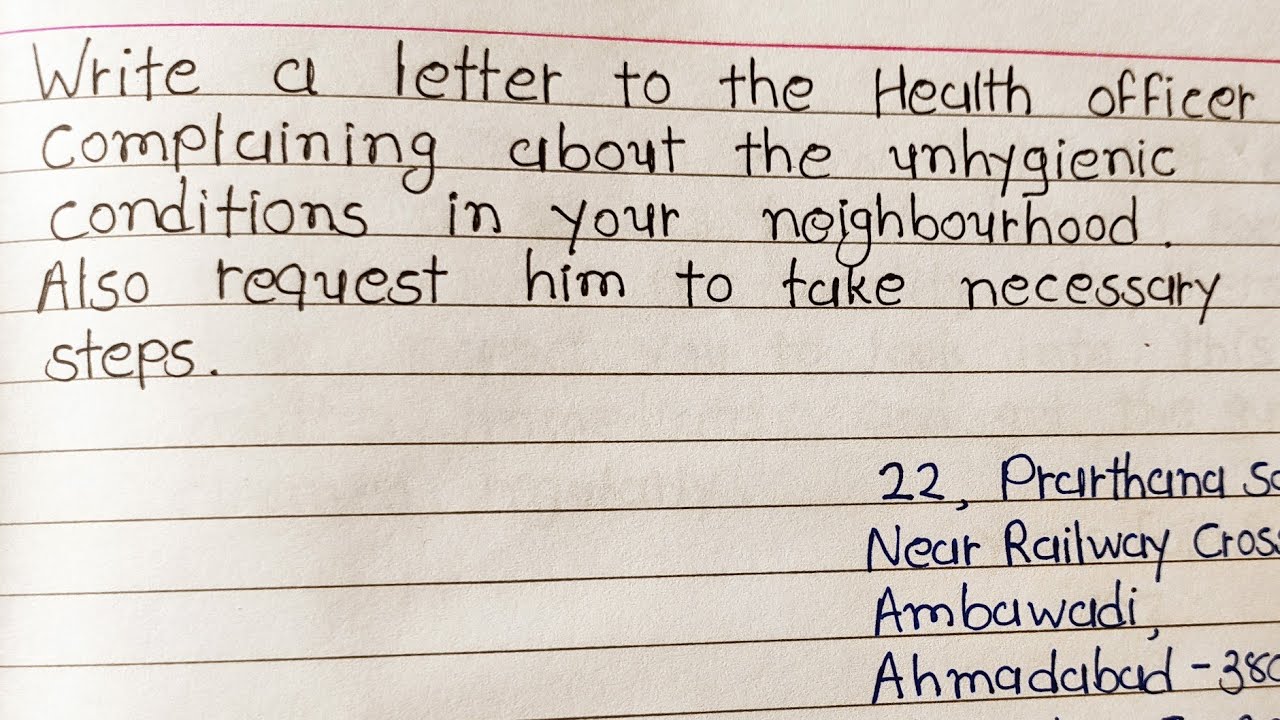 Write a letter to the Health officer
complaining about the unhygienic
conditions in your neighbourhood.
Also request him to take necessary
steps.
22, Prarthana
Near Railway
Ambawadi,
Ahmadabad -